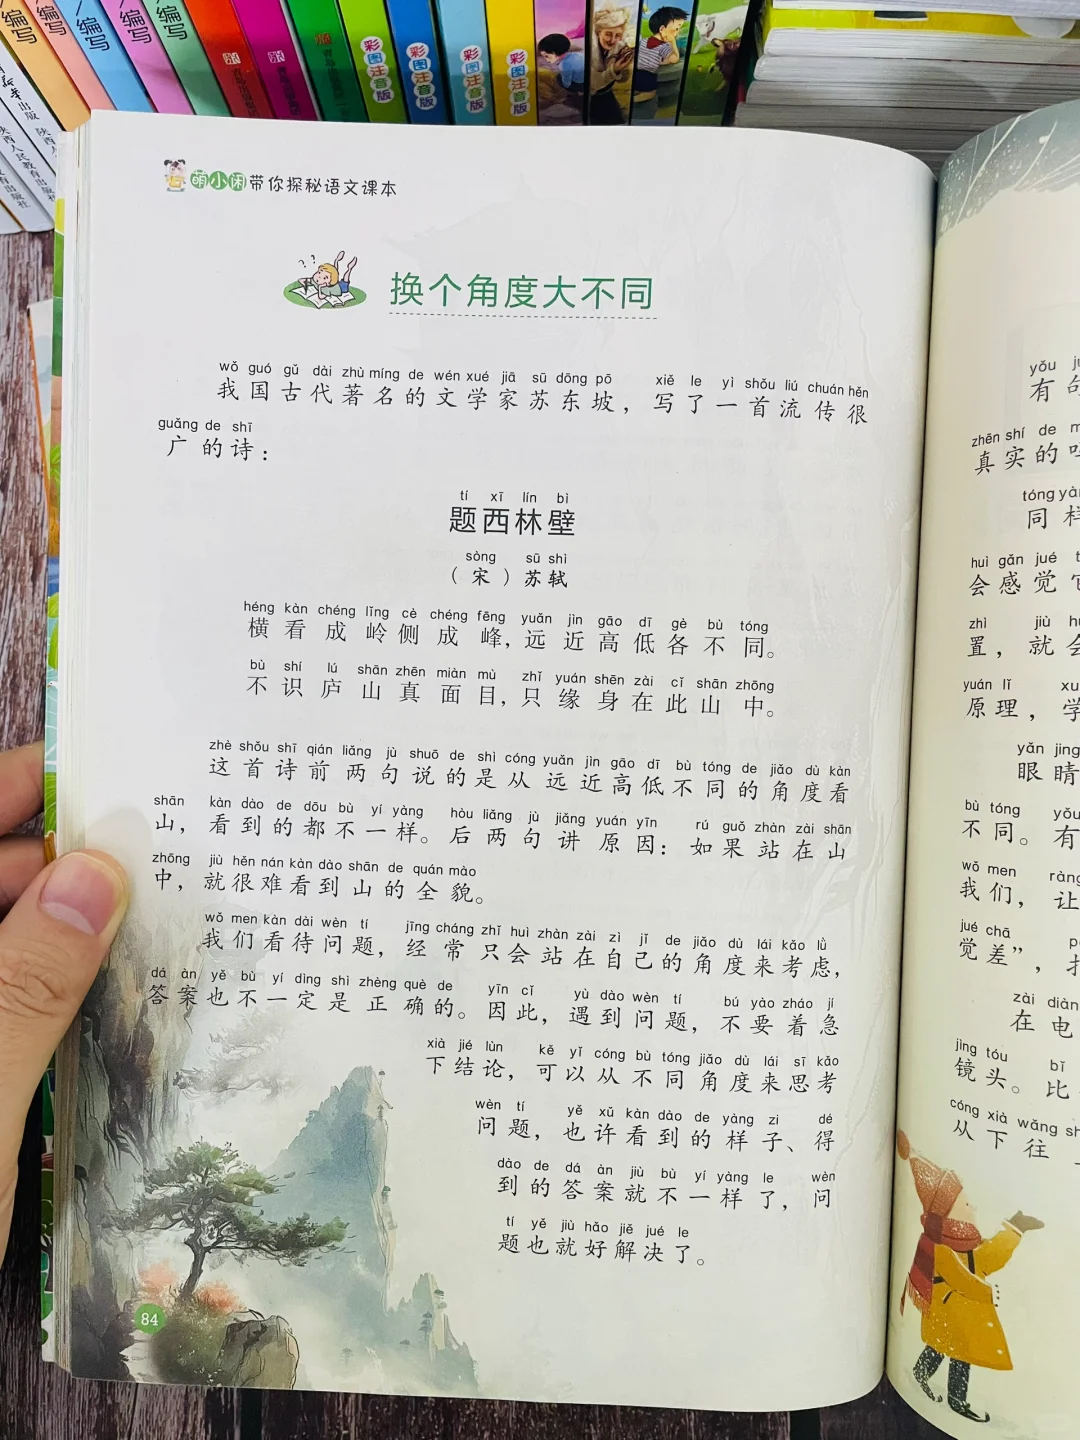 编写
编写
编写
编写
编写
彩图注音版
彩图注音版
彩图注音版
彩图注音版
陕西人民教育出版社
萌小闲带你探秘语文课本
换个角度大不同
wǒ guó gǔ dài zhù míng de wén xué jiā sū dōng pō xiě le yì shǒu liú chuán hěn
我国古代著名的文学家苏东坡，写了一首流传很
guǎng de shī
广的诗：
tí xī lín bì
题西林壁
sòng sū shì
（宋）苏轼
héng kàn chéng lǐng cè chéng fēng yuǎn jìn gāo dī gè bù tóng
横看成岭侧成峰，远近高低各不同。
bù shí lú shān zhēn miàn mù zhǐ yuán shēn zài cǐ shān zhōng
不识庐山真面目，只缘身在此山中。
zhè shǒu shī qián liǎng jù shuō de shì cóng yuǎn jìn gāo dī bù tóng de jiǎo dù kàn
这首诗前两句说的是从远近高低不同的角度看
shān kàn dào de dōu bù yí yàng hòu liǎng jù jiǎng yuán yīn rú guǒ zhàn zài shān
山，看到的都不一样。后两句讲原因：如果站在山
zhōng jiù hěn nán kàn dào shān de quán mào
中，就很难看到山的全貌。
wǒ men kàn dài wèn tí jīng cháng zhǐ huì zhàn zài zì jǐ de jiǎo dù lái kǎo lǜ
我们看待问题，经常只会站在自己的角度来考虑，
dá àn yě bù yí dìng shì zhèng què de yīn cǐ yù dào wèn tí bú yào zháo jí
答案也不一定是正确的。因此，遇到问题，不要着急
xià jié lùn kě yǐ cóng bù tóng jiǎo dù lái sī kǎo
下结论，可以从不同角度来思考
wèn tí yě xǔ kàn dào de yàng zi dé
问题，也许看到的样子、得
dào de dá àn jiù bù yí yàng le wèn
到的答案就不一样了，问
tí yě jiù hǎo jiě jué le
题也就好解决了。
84
yǒu
有
zhēn shí de
真实的
tóng yàng
同样
huì gǎn jué
会感觉
zhì jiù
置，就会
yuán lǐ
原理，学
yǎn jing
眼睛
bù tóng yǒu
不同。有
wǒ men ràng
我们，让
jué chā
觉差”，
zài diàn
在电
jìng tóu bǐ
镜头。比
cóng xià wǎng
从下往